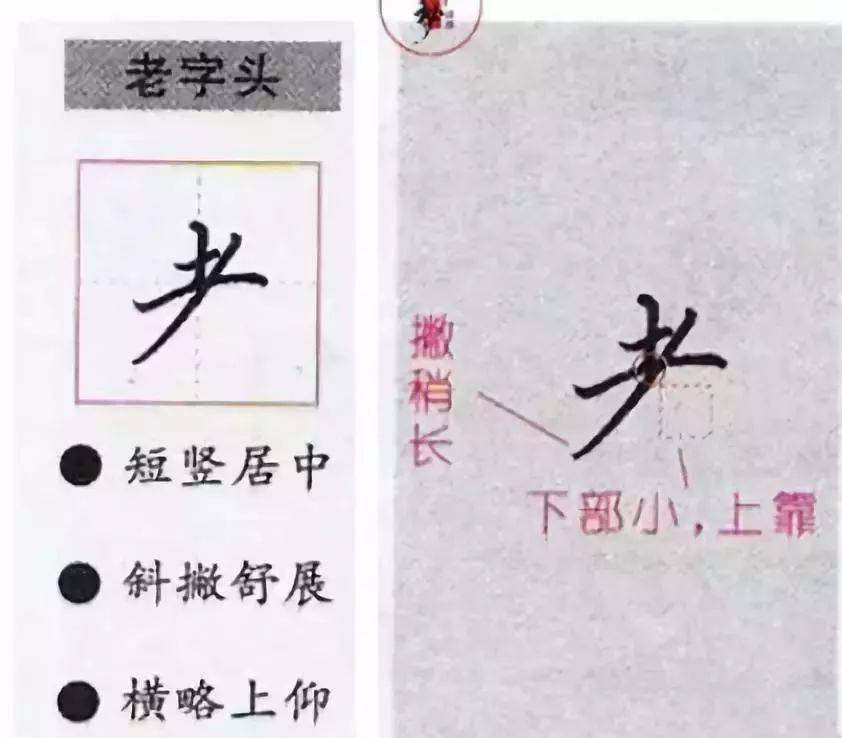 老字头
耂
短竖居中
斜撇舒展
横略上仰
耂
撇稍长
下部小，上靠